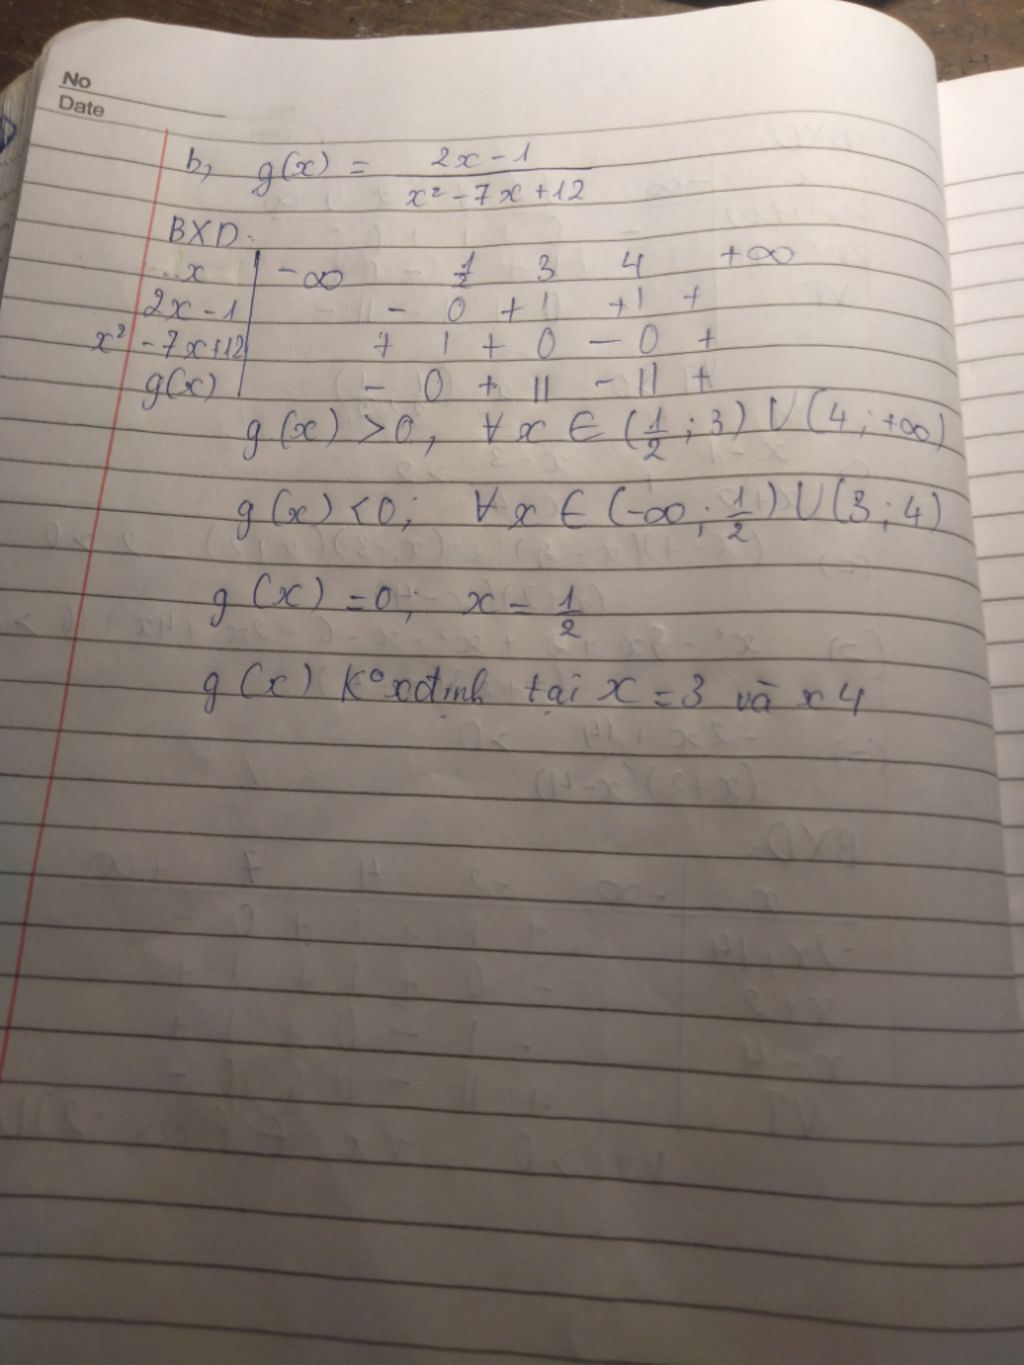 No
Date
b, g(x) = 2x - 1 / x² - 7x + 12
BXD.
x | -∞ 1/2 3 4 +∞
2x - 1 | - 0 + | + | +
x² - 7x + 12 | + | + 0 - 0 +
g(x) | - 0 + || - || +
g(x) > 0, ∀x ∈ (1/2 ; 3) ∪ (4 ; +∞)
g(x) < 0; ∀x ∈ (-∞ ; 1/2) ∪ (3 ; 4)
g(x) = 0; x = 1/2
g(x) k° xđịnh tại x = 3 và x 4